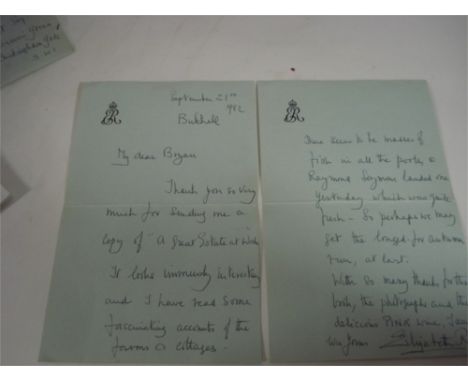 September 21st
1982
Birkhall
My dear Bryan
Thank you so very
much for sending me a
copy of "A Great Estate at Work
It looks immensely interesting
and I have read some
fascinating accounts of the
farms & cottages -
There seem to be masses of
fish in all the pools, &
Raymond Seymour landed one
yesterday which was quite
fresh - So perhaps we may
get the longed for autumn
run, at last.
With so many thanks for the
book, the photographs and the
delicious wine, I am
Elizabeth R